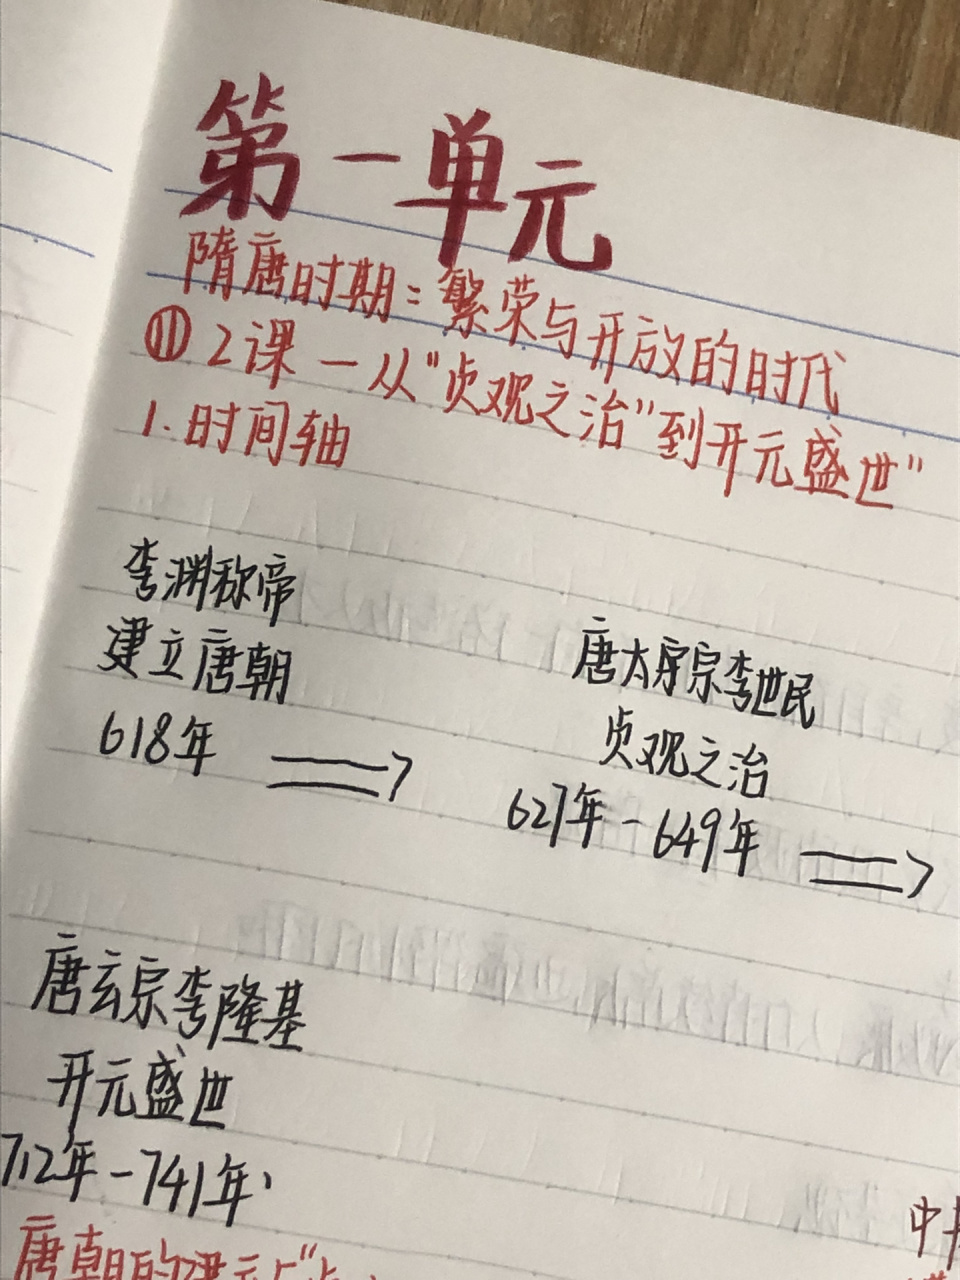 第一单元
隋唐时期：繁荣与开放的时代
2课 — 从"贞观之治"到开元盛世"
1.时间轴
李渊称帝
建立唐朝
618年
唐太宗李世民
贞观之治
627年-649年
唐玄宗李隆基
开元盛世
712年-741年
唐朝的建立与"
中